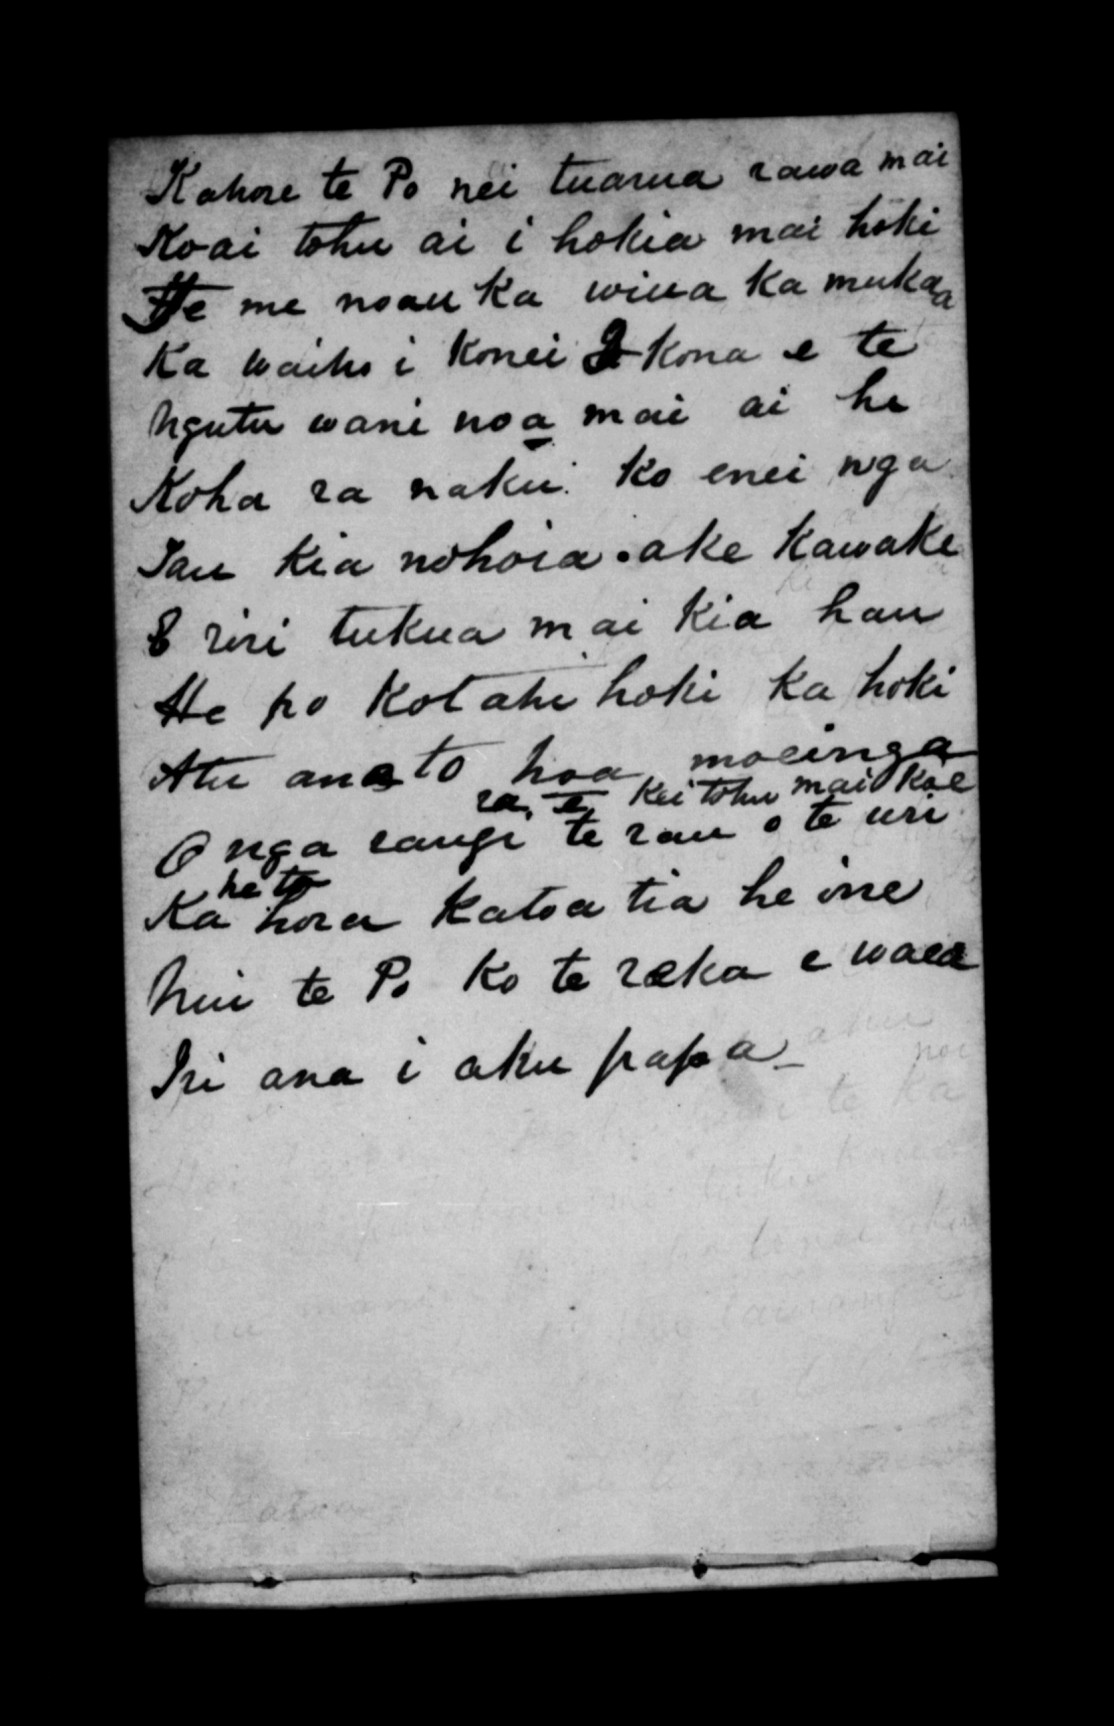 Kahore te Po nei tuarua rawa mai
Koai tohu ai i hokia mai hoki
He me noau Ka wiua Ka mukaa
Ka waiho i Konei I Kona e te
Ngutu wani noa mai ai he
Koha ra naku. Ko enei nga
Tau Kia nohoia ake Kawake
E riri tukua mai Kia hau
He po Kotahi hoki Ka hoki
Atu ana to hoa moeinga
ra, e, Kei tohu mai Koe
O nga rangi te rau o te uri
he to
Ka hora Katoa tia he one
Nui te Po Ko te raka e waea
Iri ana i aku papa